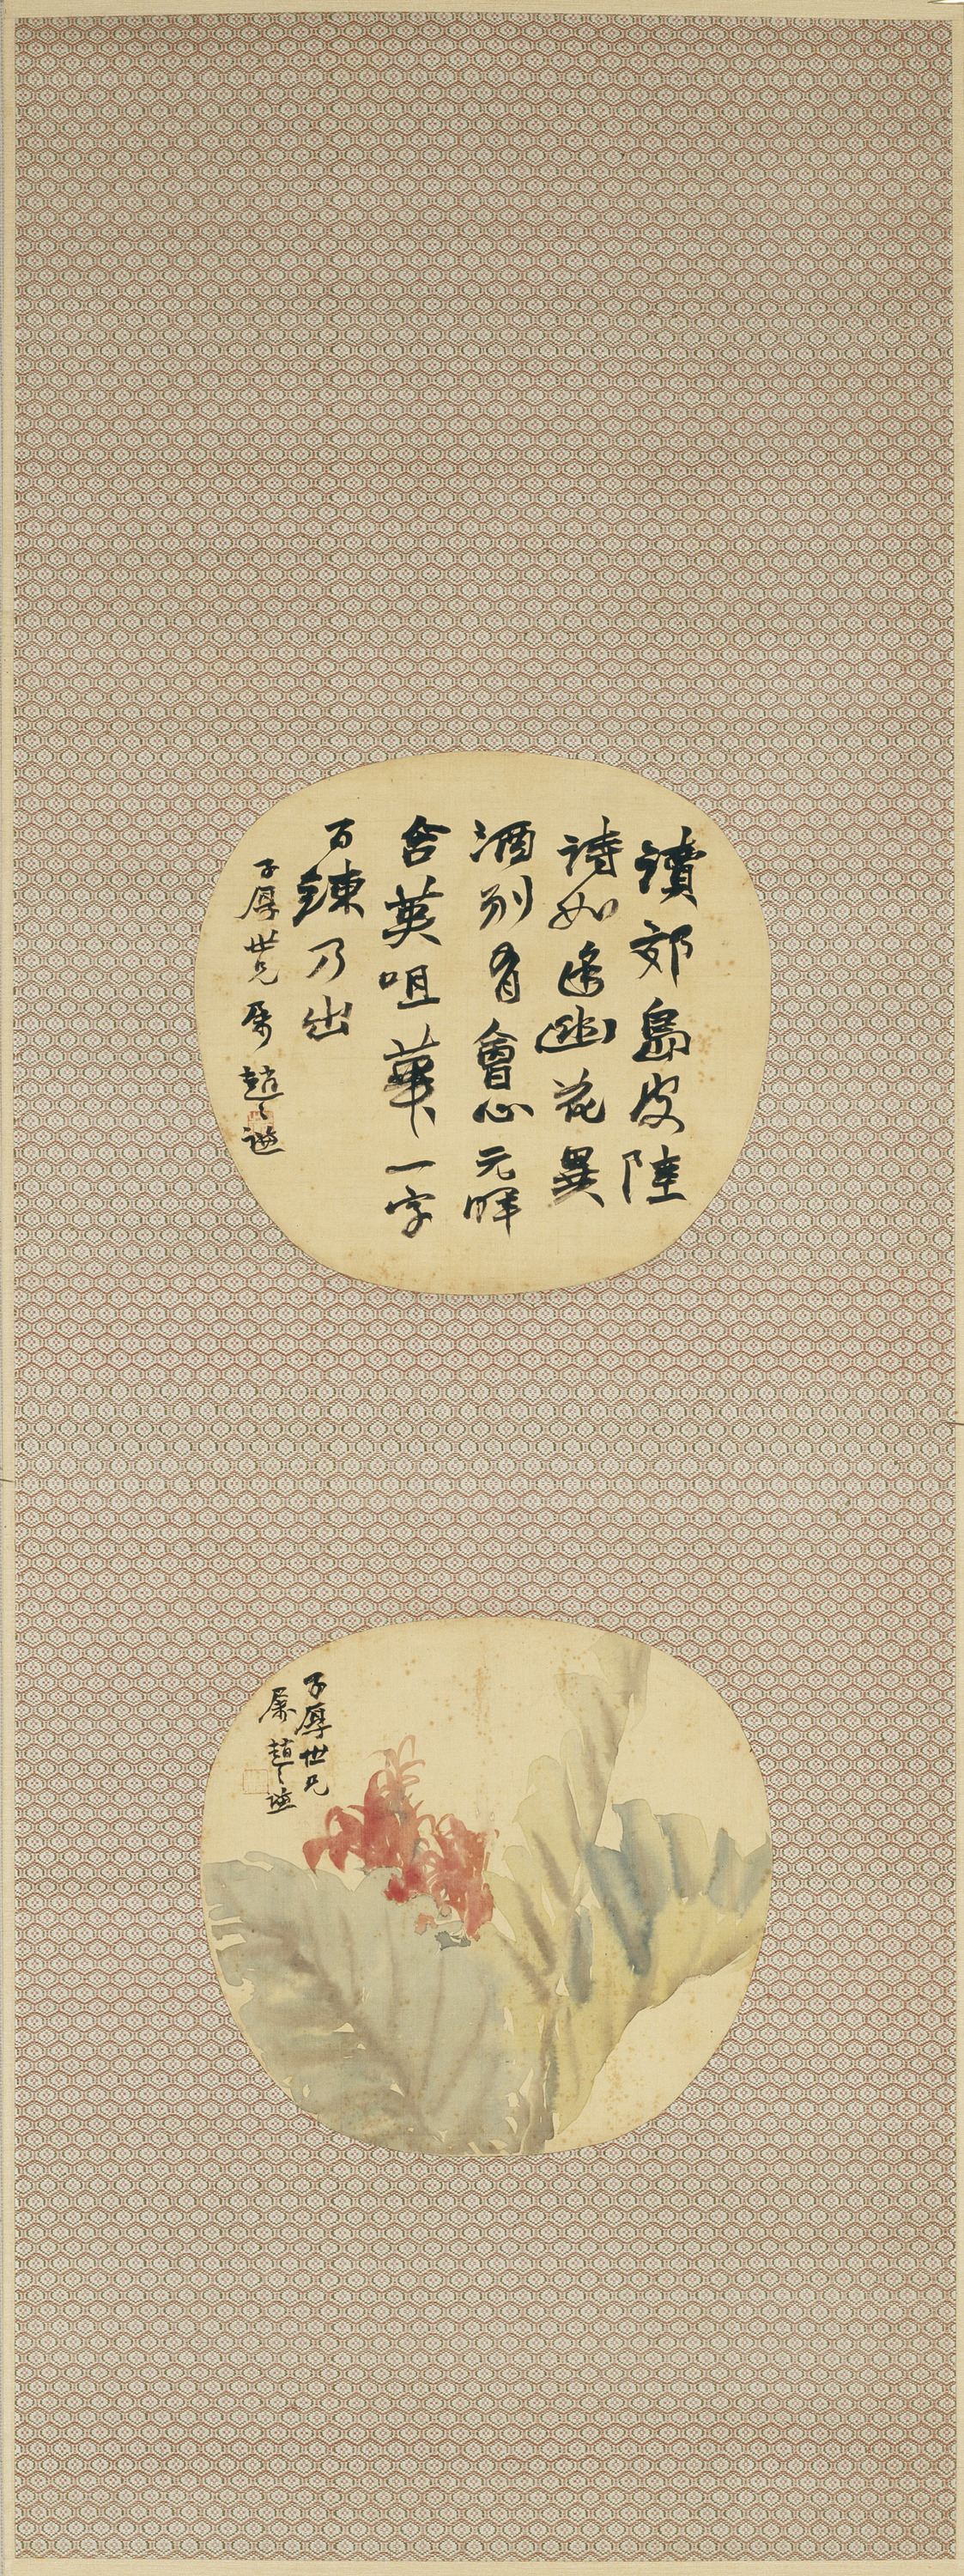 讀郊島皮陸
詩如逢幽花異
酒別有會心元暉
含英咀華一字
百鍊乃出
子厚世兄屬趙之謙
子厚世兄
屬趙之謙